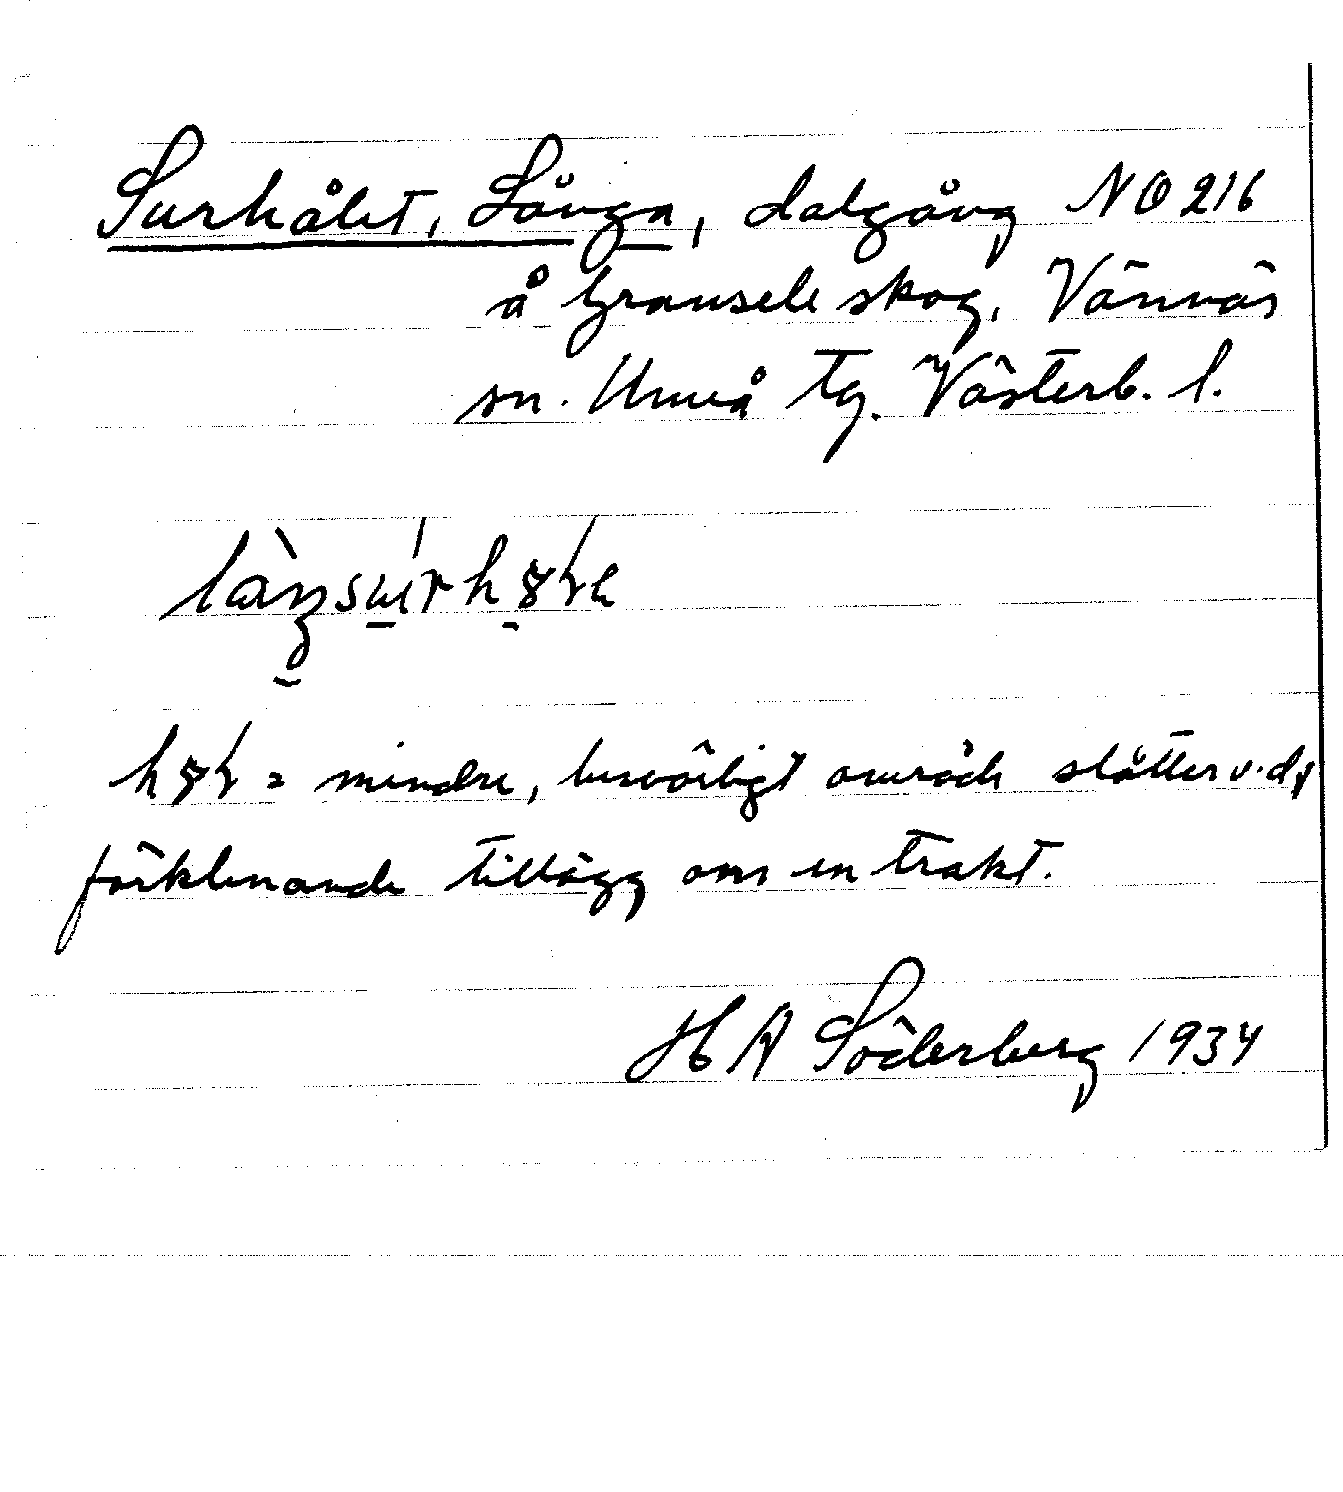 Surhålet, Långa, dalgång NO 216
å Gransele skog, Vännäs
sn. Umeå tg. Västerb. l.
mindre, besvärligt område slåtter v. dy
förklenande tillägg om en trakt.
H A Söderberg 1934